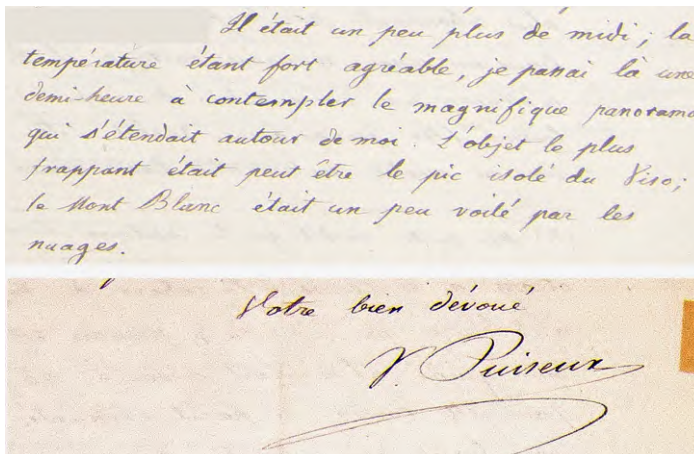 Il était un peu plus de midi ; la
température étant fort agréable, je passai là une
demi-heure à contempler le magnifique panorama
qui s'étendait autour de moi. L'objet le plus
frappant était peut être le pic isolé du Viso ;
le Mont Blanc était un peu voilé par les
nuages.
Votre bien dévoué
V. Puiseux